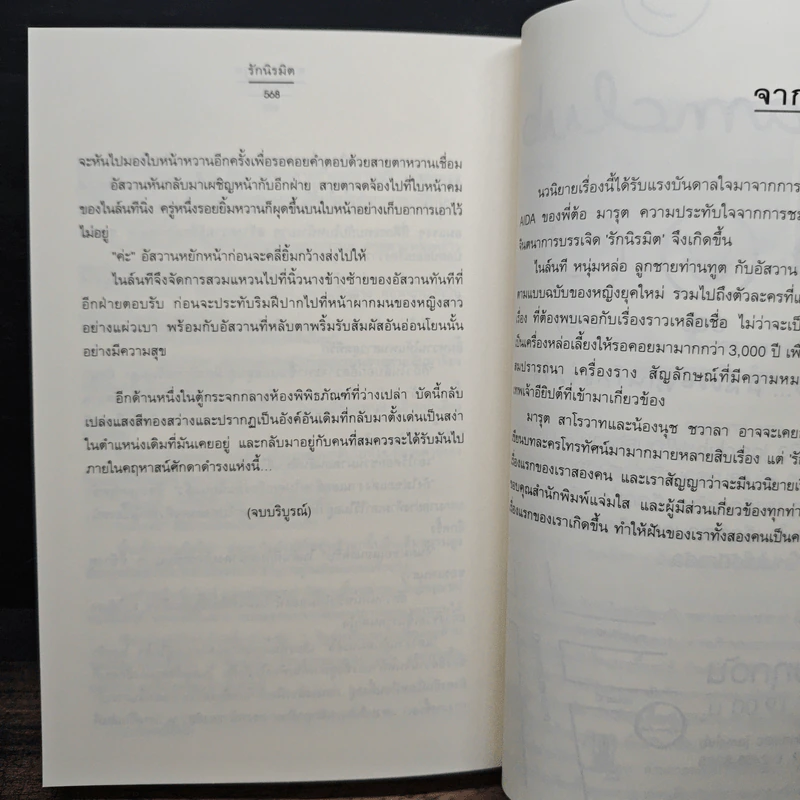 รักนิรมิต
568
จะหันไปมองใบหน้าหวานอีกครั้งเพื่อรอคอยคำตอบด้วยสายตาหวานเชื่อม
อัสวานหันกลับมาเผชิญหน้ากับอีกฝ่าย สายตาจดจ้องไปที่ใบหน้าคม
ของไนล์นทีนิ่ง ครู่หนึ่งรอยยิ้มหวานก็ผุดขึ้นบนใบหน้าอย่างเก็บอาการเอาไว้
ไม่อยู่
“ค่ะ” อัสวานหยักหน้าก่อนจะคลี่ยิ้มกว้างส่งไปให้
ไนล์นทีจึงจัดการสวมแหวนไปที่นิ้วนางข้างซ้ายของอัสวานทันทีที่
อีกฝ่ายตอบรับ ก่อนจะประทับริมฝีปากไปที่หน้าผากมนของหญิงสาว
อย่างแผ่วเบา พร้อมกับอัสวานที่หลับตาพริ้มรับสัมผัสอันอ่อนโยนนั้น
อย่างมีความสุข
อีกด้านหนึ่งในตู้กระจกกลางห้องพิพิธภัณฑ์ที่ว่างเปล่า บัดนี้กลับ
เปล่งแสงสีทองสว่างและปรากฏเป็นอังค์อันเดิมที่กลับมาตั้งเด่นเป็นสง่า
ในตำแหน่งเดิมที่มันเคยอยู่ และกลับมาอยู่กับคนที่สมควรจะได้รับมันไป
ภายในคฤหาสน์ศักดาดำรงแห่งนี้...
(จบบริบูรณ์)
จาก
นวนิยายเรื่องนี้ได้รับแรงบันดาลใจมาจากการ
AIDA ของพี่ต้อ มารุต ความประทับใจจากการช
จินตนาการบรรเจิด ‘รักนิรมิต’ จึงเกิดขึ้น
ไนล์นที หนุ่มหล่อ ลูกชายท่านทูต กับอัสวาน
ตามแบบฉบับของหญิงยุคใหม่ รวมไปถึงตัวละครที่
เรื่อง ที่ต้องพบเจอกับเรื่องราวเหลือเชื่อ ไม่ว่าจะเป็
เป็นเครื่องหล่อเลี้ยงให้รอคอยมามากกว่า 3,000 ปี
สมปรารถนา เครื่องราง สัญลักษณ์ที่มีความหม
เทพเจ้าอียิปต์ที่เข้ามาเกี่ยวข้อง
มารุต สาโรวาทและน้องนุช ชวาลา อาจจะเคย
เขียนบทละครโทรทัศน์มามากมายหลายสิบเรื่อง แต่ ‘รั
เรื่องแรกของเราสองคน และเราสัญญาว่าจะมีนวนิยาย
ขอบคุณสำนักพิมพ์แจ่มใส และผู้มีส่วนเกี่ยวข้องทุกท่า
เรื่องแรกของเราเกิดขึ้น ทำให้ฝันของเราทั้งสองคนเป็น